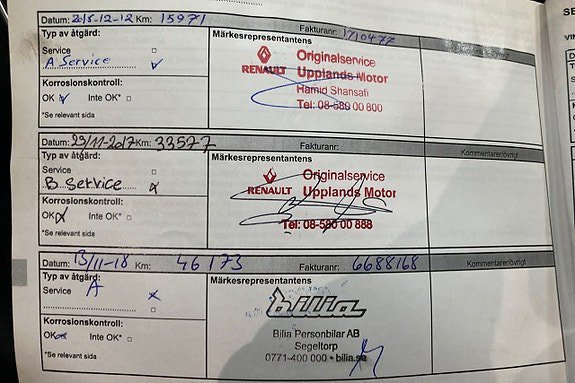 Datum: 2015-12-12 Km: 15971 Fakturanr: 1710477
Typ av åtgärd:
Service
A Service
Korrosionskontroll:
OK Inte OK*
*Se relevant sida
Märkesrepresentantens
RENAULT
Originalservice
Upplands Motor
Hamid Shansafi
Tel: 08-580 00 800
Datum: 29/11-2017 Km: 33577 Fakturanr: Kommentarer/övrigt
Typ av åtgärd:
Service
B Service
Korrosionskontroll:
OK Inte OK*
*Se relevant sida
Märkesrepresentantens
RENAULT
Originalservice
Upplands Motor
Tel: 08-580 00 888
Datum: 13/11-18 Km: 46173 Fakturanr: 6688168 Kommentarer/övrigt
Typ av åtgärd:
Service A
Korrosionskontroll:
OK Inte OK*
*Se relevant sida
Märkesrepresentantens
bilia
Bilia Personbilar AB
Segeltorp
0771-400 000 • bilia.se